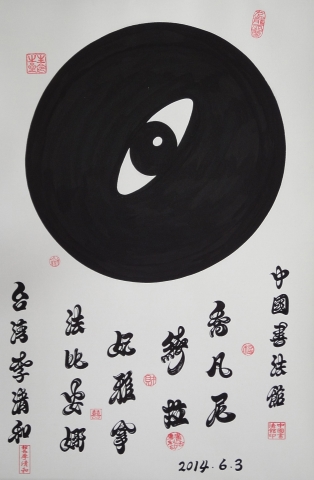 中國書法館
喬凡尼
綺拉
妮雅
法比安娜
台湾李清和
2014.6.3